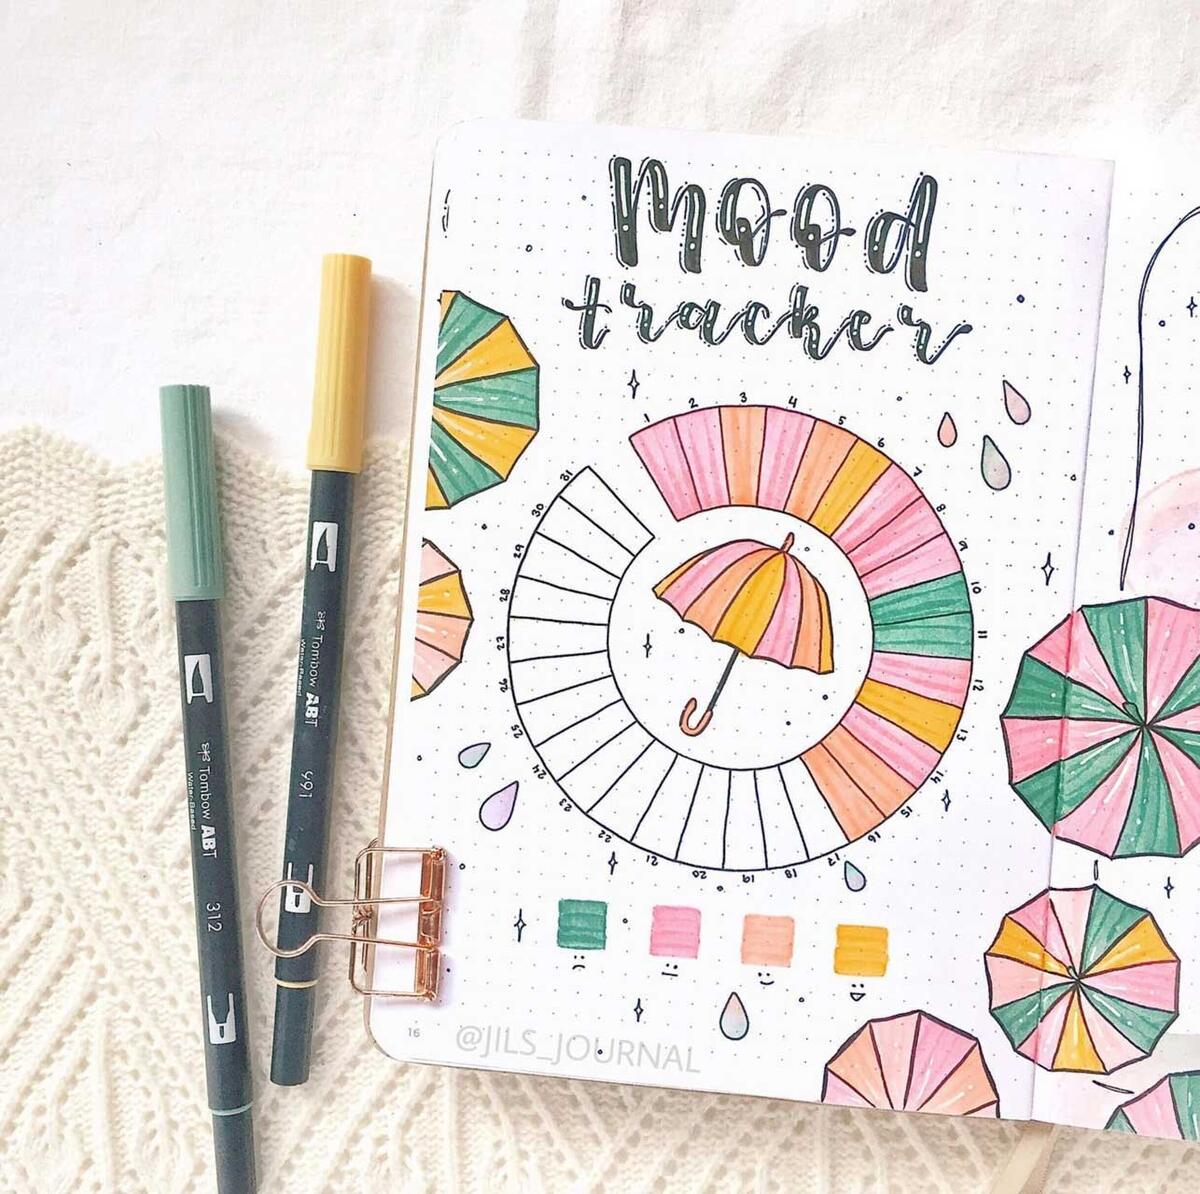 Mood
tracker
1
2
3
4
5
6
7
8
9
10
11
12
13
14
15
16
17
18
19
20
21
22
23
24
25
26
27
28
29
30
31
Tombow ABT
Water-Based
991
Tombow ABT
Water-Based
312
16
@JILS_JOURNAL